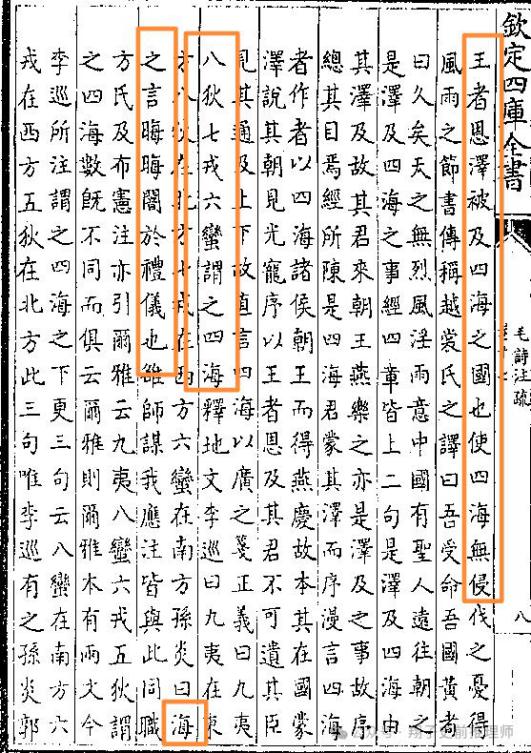 欽定四庫全書
毛詩注疏
八
王者恩澤被及四海之國也使四海無侵伐之憂得
風雨之節書傳稱越裳氏之譯曰吾受命吾國黃耇
曰久矣天之無烈風淫雨意中國有聖人遠往朝之
是澤及四海之事經四章皆上二句是澤及四海由
其澤及故其君來朝王燕樂之亦是澤及之事故序
總其目焉經所陳是四海君蒙其澤而序漫言四海
者作者以四海諸侯朝王而得燕慶故本其在國蒙
澤說其朝見光寵序以王者恩及其君不可遺其臣
見其通及上下故直言四海以廣之箋正義曰九夷
八狄七戎六蠻謂之四海釋地文李巡曰九夷在東
方八狄在北方七戎在西方六蠻在南方孫炎曰海
之言晦晦闇於禮儀也雒師謀我應注皆與此同職
方氏及布憲注亦引爾雅云九夷八蠻六戎五狄謂
之四海數既不同而俱云爾雅則爾雅本有兩文今
李巡所注謂之四海之下更三句云八蠻在南方六
戎在西方五狄在北方此三句唯李巡有之孫炎郭